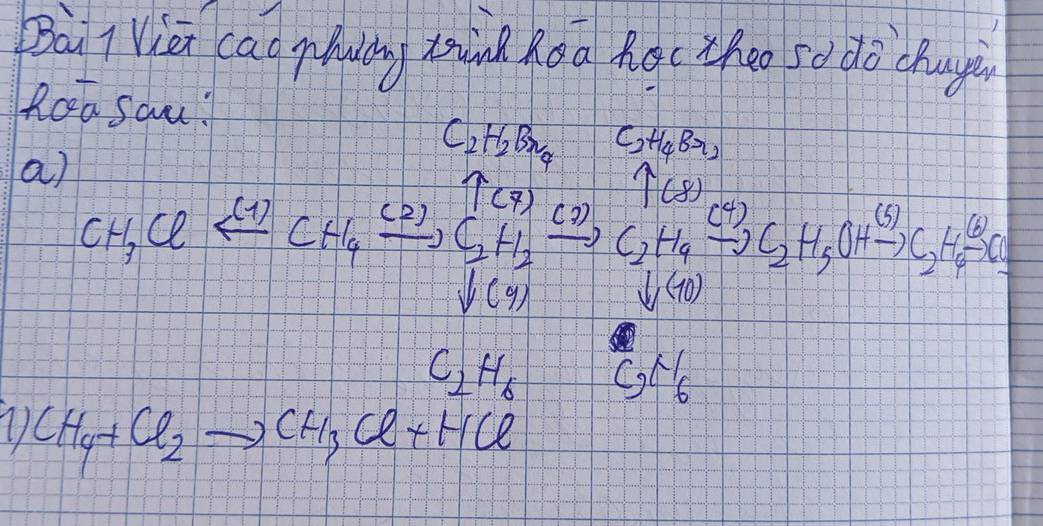 Bài 1 Viết các phương trình hoá học theo sơ đồ chuyển
hoá sau:
a)
C2H2Br4 C2H4Br2
↑(7) ↑(8)
CH3Cl ←(1) CH4 (2)→ C2H2 (3)→ C2H4 (4)→ C2H5OH (5)→ C2H4 (6)→ CO2
↓(9) ↓(10)
C2H6 C2H6
1) CH4 + Cl2 → CH3Cl + HCl